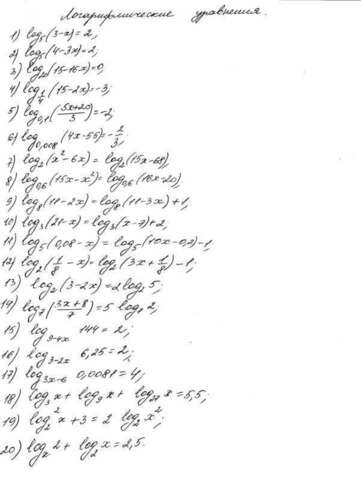 Логарифмические уравнения.
1) log₅(3-x)=2;
2) log₅(4-3x)=2;
3) log₂₀(15-16x)=0;
4) log_{1/4}(15-2x)=-3;
5) log_{0,1}((5x+20)/3)=-2;
6) log_{0,008}(4x-55)=-1/3;
7) log₂(x²-6x)=log₂(15x-68);
8) log_{0,6}(15x-x²)=log_{0,6}(16x-20);
9) log₈(11-2x)=log₈(11-3x)+1;
10) log₃(21-x)=log₃(x-7)+2;
11) log₅(0,08-x)=log₅(10x-0,2)-1;
12) log₂(1/8-x)=log₂(3x+1/8)-1;
13) log₂(3-2x)=2log₂5;
14) log₇((3x+8)/7)=5log₇2;
15) log_{9-4x} 144=2;
16) log_{3-2x} 6,25=2;
17) log_{3x-6} 0,0081=4;
18) log₃x+log₉x+log₂₇x=5,5;
19) log₂²x+3=2log₂x²;
20) logₓ2+log₂x=2,5.